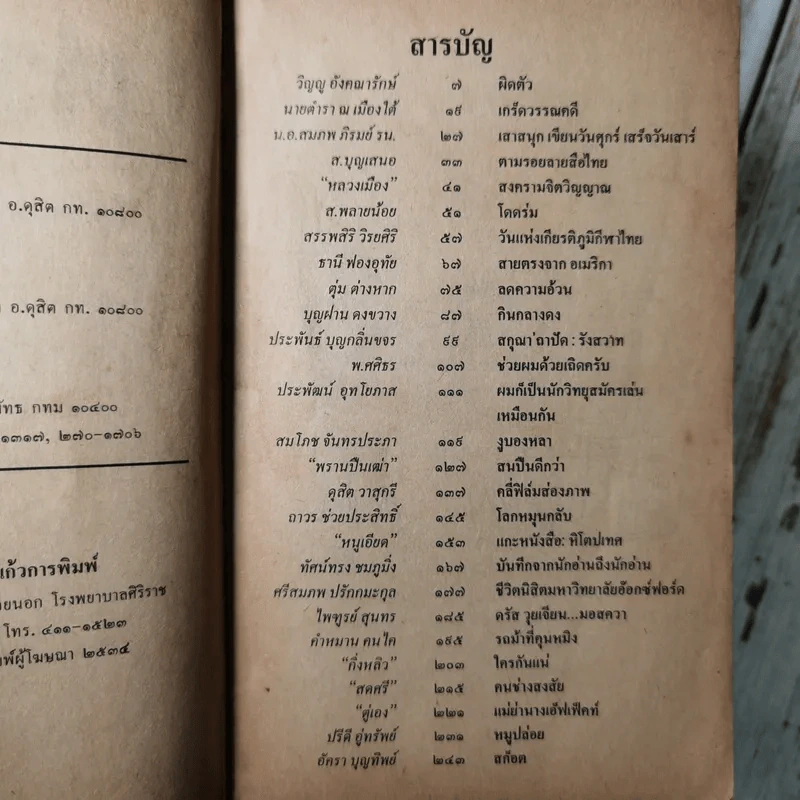 อ.ดุสิต กท. ๑๐๘๐๐
อ.ดุสิต กท. ๑๐๘๐๐
กทม ๑๐๔๐๐
๑๓๑๗, ๒๗๐-๑๗๐๖
แก้วการพิมพ์
โรงพยาบาลศิริราช
โทร. ๔๑๑-๑๕๒๓
ผู้โฆษณา ๒๕๓๔
สารบัญ
วิญญู อังคณารักษ์ ๗ ผิดตัว
นายตำรา ณ เมืองใต้ ๑๙ เกร็ดวรรณคดี
น.อ.สมภพ ภิรมย์ รน. ๒๗ เสาสนุก เขียนวันศุกร์ เสร็จวันเสาร์
ส.บุญเสนอ ๓๓ ตามรอยลายสือไทย
“หลวงเมือง” ๔๑ สงครามจิตวิญญาณ
ส.พลายน้อย ๕๑ โดดร่ม
สรรพสิริ วิรยศิริ ๕๗ วันแห่งเกียรติภูมิกีฬาไทย
ธานี ฟองอุทัย ๖๗ สายตรงจาก อเมริกา
ตุ่ม ต่างหาก ๗๕ ลดความอ้วน
บุญฝาน ดงขวาง ๘๗ กินกลางดง
ประพันธ์ บุญกลิ่นขจร ๙๙ สกุณา'ถาปัด : รังสวาท
พ.ศศิธร ๑๐๗ ช่วยผมด้วยเถิดครับ
ประพัฒน์ อุทโยภาส ๑๑๑ ผมก็เป็นนักวิทยุสมัครเล่น
เหมือนกัน
สมโภช จันทรประภา ๑๑๙ งูบองหลา
“พรานปืนเฒ่า” ๑๒๗ สนปืนดีกว่า
ดุสิต วาสุกรี ๑๓๗ คลี่ฟิล์มส่องภาพ
ถาวร ช่วยประสิทธิ์ ๑๔๕ โลกหมุนกลับ
“หนูเอียด” ๑๕๓ แกะหนังสือ: หิโตปเทศ
ทัศน์ทรง ชมภูมิ่ง ๑๖๗ บันทึกจากนักอ่านถึงนักอ่าน
ศรีสมภพ ปรักกมะกุล ๑๗๗ ชีวิตนิสิตมหาวิทยาลัยอ๊อกซ์ฟอร์ด
ไพฑูรย์ สุนทร ๑๘๕ ดรัส วุยเจียน...มอสควา
คำหมาน คนไค ๑๙๕ รถม้าที่คุนหมิง
“กิ่งหลิว” ๒๐๓ ใครกันแน่
“สดศรี” ๒๑๕ คนช่างสงสัย
“คู่เอง” ๒๒๑ แม่ย่านางเอ๊ฟเฟ็คท์
ปรีดี อู่ทรัพย์ ๒๓๑ หมูปล่อย
อัครา บุญทิพย์ ๒๔๓ สก๊อต